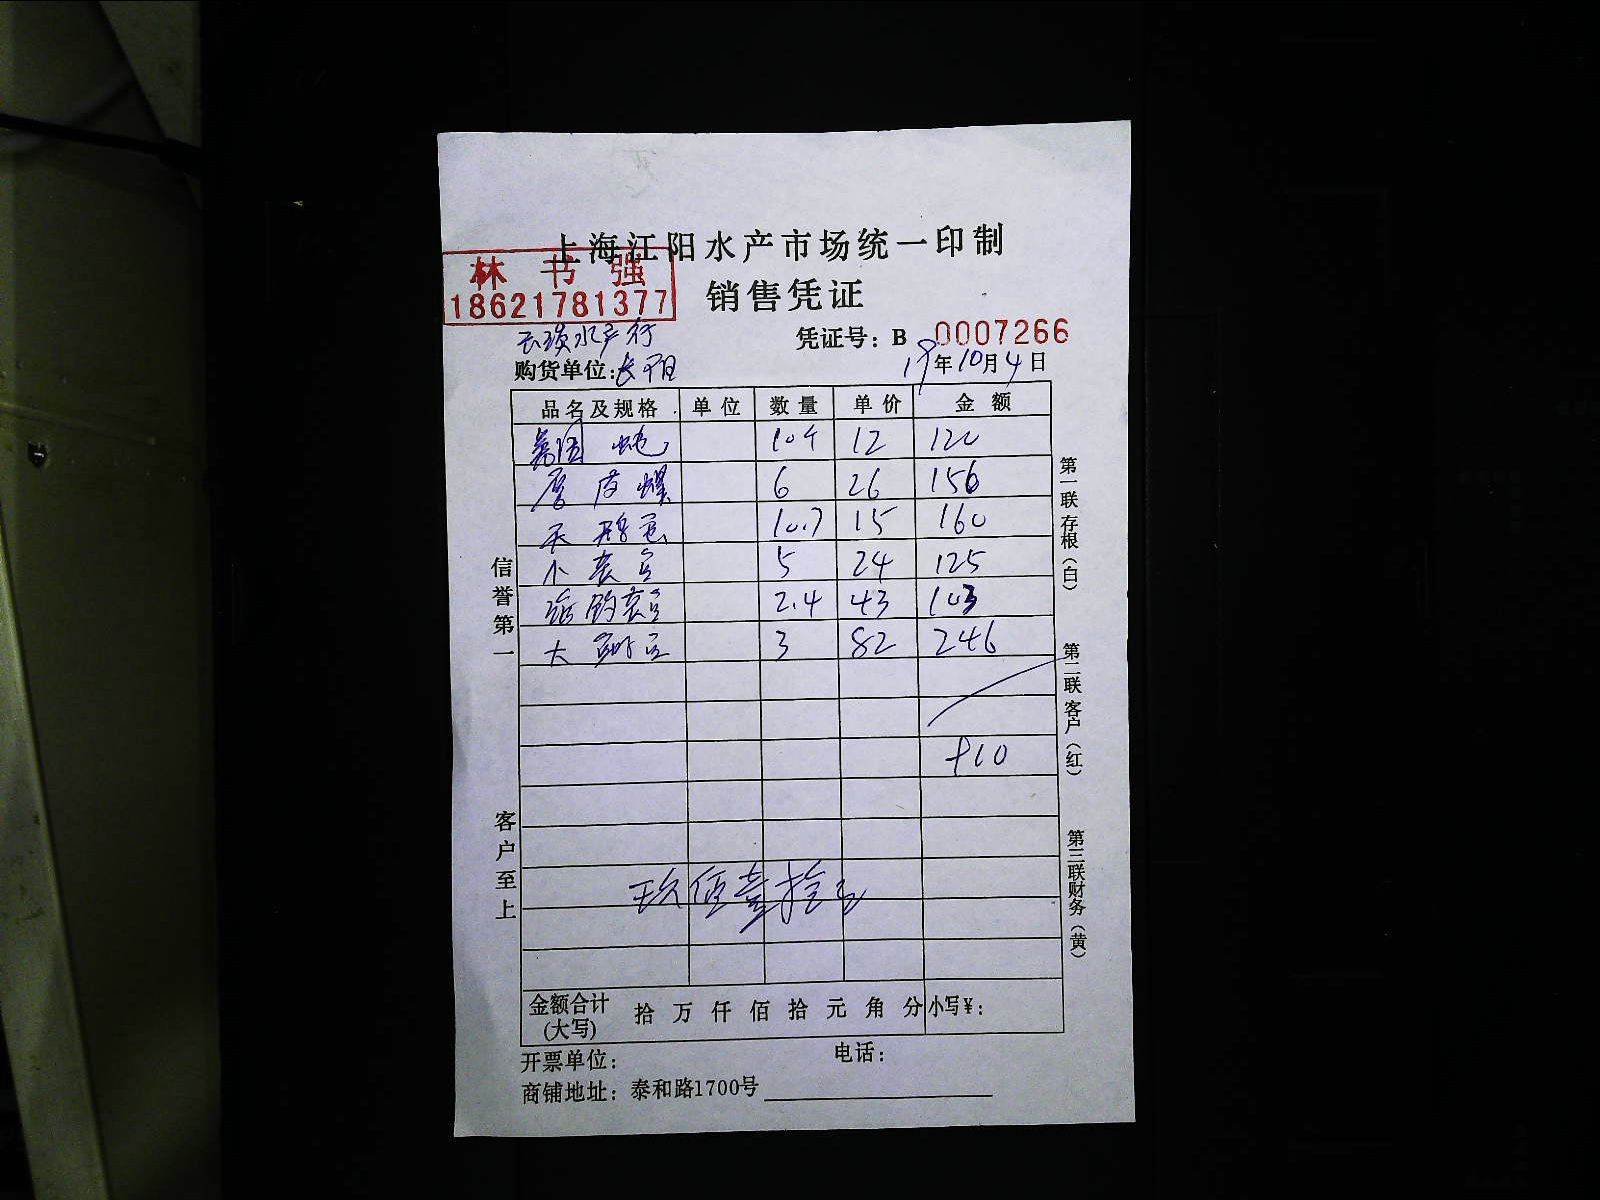 上海江阳水产市场统一印制
林书强
18621781377
销售凭证
水产行
凭证号：B 0007266
购货单位：长阳
19年10月4日
品名及规格 单位 数量 单价 金额
12 120
6 26 156
10.7 15 160
小 5 24 125
2.4 43 103
大 3 82 246
910
玖佰壹拾元
金额合计(大写) 拾 万 仟 佰 拾 元 角 分 小写¥：
开票单位： 电话：
商铺地址：泰和路1700号
信誉第一
客户至上
第一联存根（白）
第二联客户（红）
第三联财务（黄）